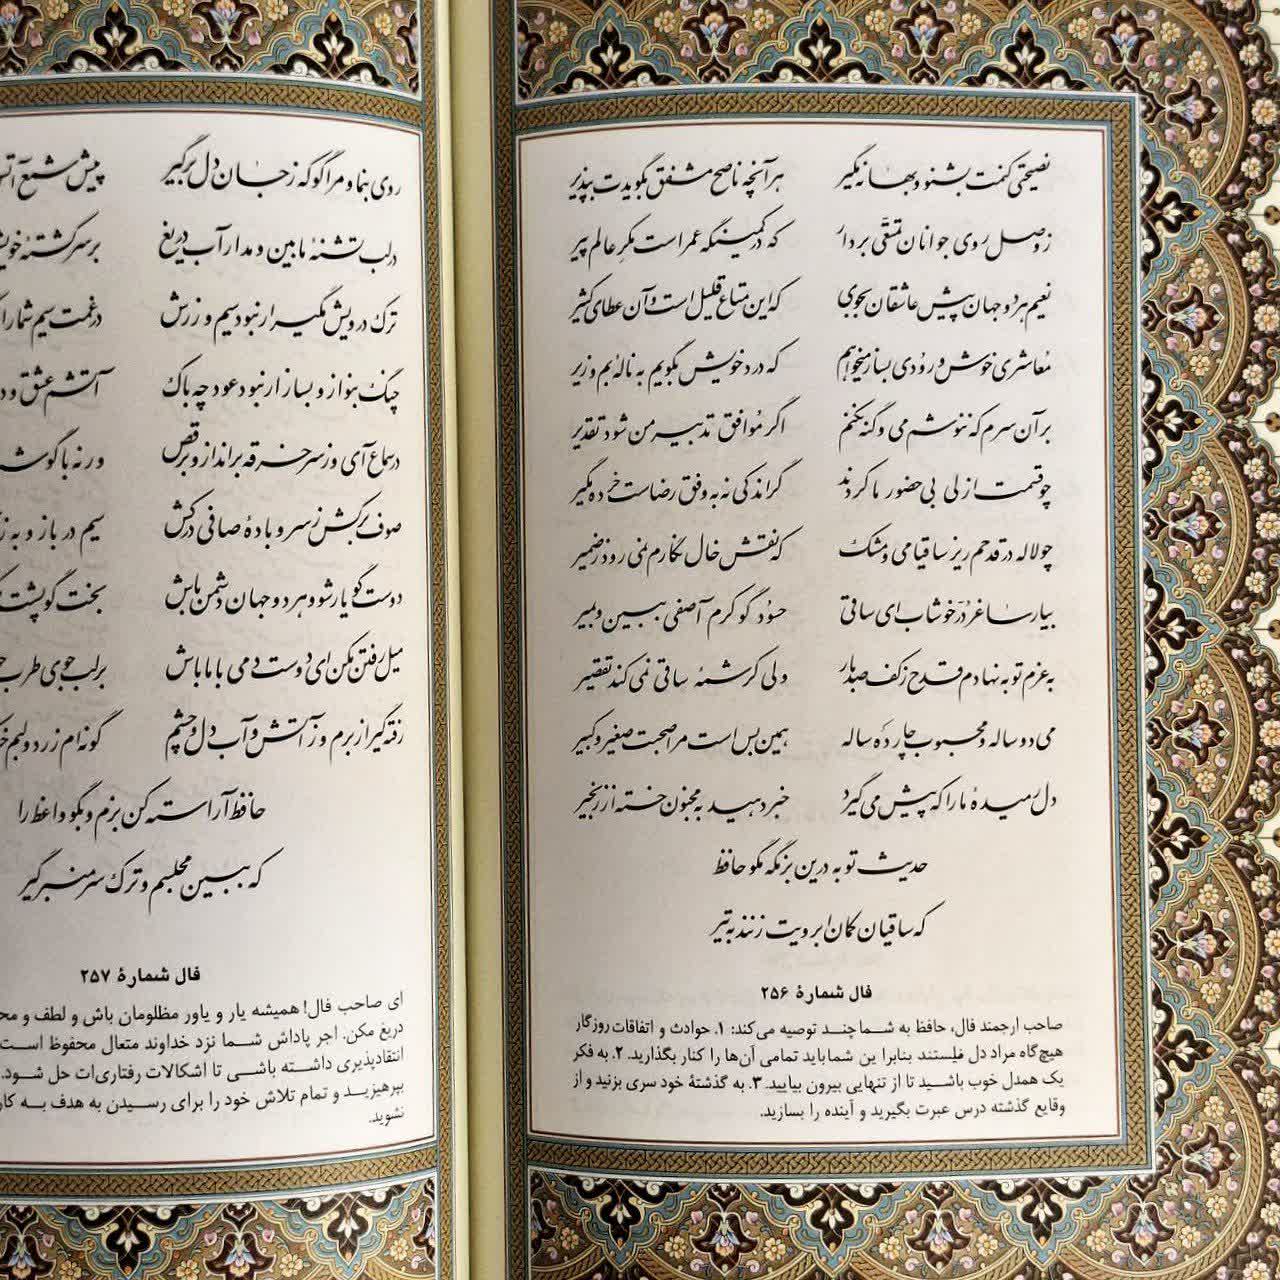 نصیحتی کنمت بشنو و بهانه مگیر
هر آنچه ناصح مشفق بگویدت بپذیر
ز وصل روی جوانان تمتّعی بردار
که در کمینگه عمر است مکر عالم پیر
نعیم هر دو جهان پیش عاشقان بجوی
که این متاع قلیل است و آن عطای کثیر
معاشری خوش و رودی بساز میخواهم
که درد خویش بگویم به ناله بم و زیر
بر آن سرم که ننوشم می و گنه نکنم
اگر موافق تدبیر من شود تقدیر
چو قسمت ازلی بی حضور ما کردند
گر اندکی نه به وفق رضاست خرده مگیر
چو لاله در قدحم ریز ساقیا می و مشک
که نقش خال نگارم نمی رود ز ضمیر
بیار ساغر درّ خوشاب ای ساقی
حسود گو کرم آصفی ببین و بمیر
به عزم توبه نهادم قدح ز کف صد بار
ولی کرشمهٔ ساقی نمی کند تقصیر
می دو ساله و محبوب چارده ساله
همین بس است مرا صحبت صغیر و کبیر
دل رمیدهٔ ما را که پیش می گیرد
خبر دهید به مجنون خسته از زنجیر
حدیث توبه درین بزمگه مگو حافظ
که ساقیان کمان ابرویت زنند به تیر
فال شمارهٔ ۲۵۶
صاحب ارجمند فال، حافظ به شما چند توصیه می‌کند: ۱. حوادث و اتفاقات روزگار
هیچ‌گاه مراد دل من نیستند بنابراین شما باید تمامی آن‌ها را کنار بگذارید. ۲. به فکر
یک همدل خوب باشید تا از تنهایی بیرون بیایید. ۳. به گذشتهٔ خود سری بزنید و از
وقایع گذشته درس عبرت بگیرید و آینده را بسازید.
روی بنما و مرا گو که ز جان دل برگیر
پیش شمع آتش
در لب تشنهٔ ما بین و مدار آب دریغ
بر سر کشتهٔ خویش
ترک درویش مگیر ار نبود سیم و زرش
در غمت سیم شمار
چنگ بنواز و بساز ار نبود عود چه باک
آتشم عشق و
در سماع آی و ز سر خرقه برانداز و برقص
ورنه با گوشه
صوف برکش ز سر و بادهٔ صافی درکش
سیم در باز و به
دوست گو یار شو و هر دو جهان دشمن باش
بخت گو پشت
میل رفتن مکن ای دوست دمی با ما باش
بر لب جوی طرب
رفته گیر از برم وز آتش و آب دل و چشم
گونه ام زرد و لبم
حافظ آراسته کن بزم و بگو واعظ را
که ببین مجلسم و ترک سر منبر گیر
فال شمارهٔ ۲۵۷
ای صاحب فال! همیشه یار و یاور مظلومان باش و لطف و
دریغ مکن. اجر پاداش شما نزد خداوند متعال محفوظ است
انتقادپذیری داشته باشی تا اشکالات رفتاری‌ات حل شود.
بپرهیزید و تمام تلاش خود را برای رسیدن به هدف به
نشوید.